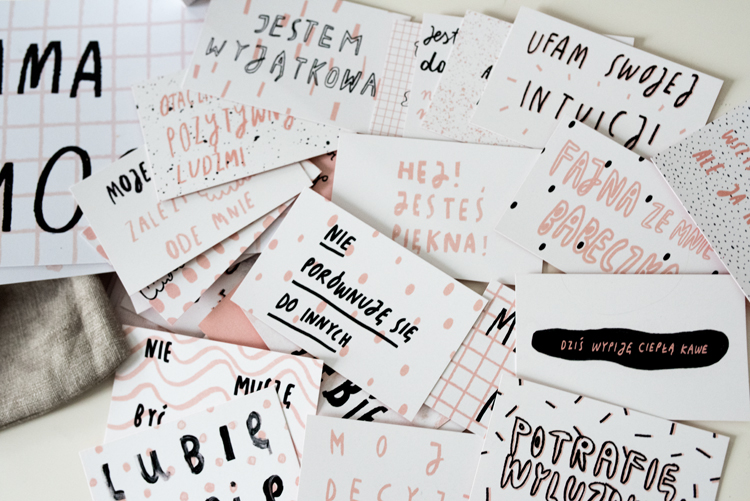 AMA
MOC
JESTEM
WYJĄTKOWA
jest
do
UFAM SWOJEJ
INTUICJI
OTACZ
POZYTYWN
LUDZMI
MOJE
ZALEŻ
ODE MNIE
HEJ!
JESTEŚ
PIĘKNA!
FAJNA ZE MNIE
BABECZKA
NIE
PORÓWNUJĘ SIĘ
DO INNYCH
DZIŚ WYPIJĘ CIEPŁĄ KAWE
NIE
MUSZĘ
BYĆ
LUBIĘ
BIE
MOJ
DECYZ
POTRAFIĘ
WYLUZ